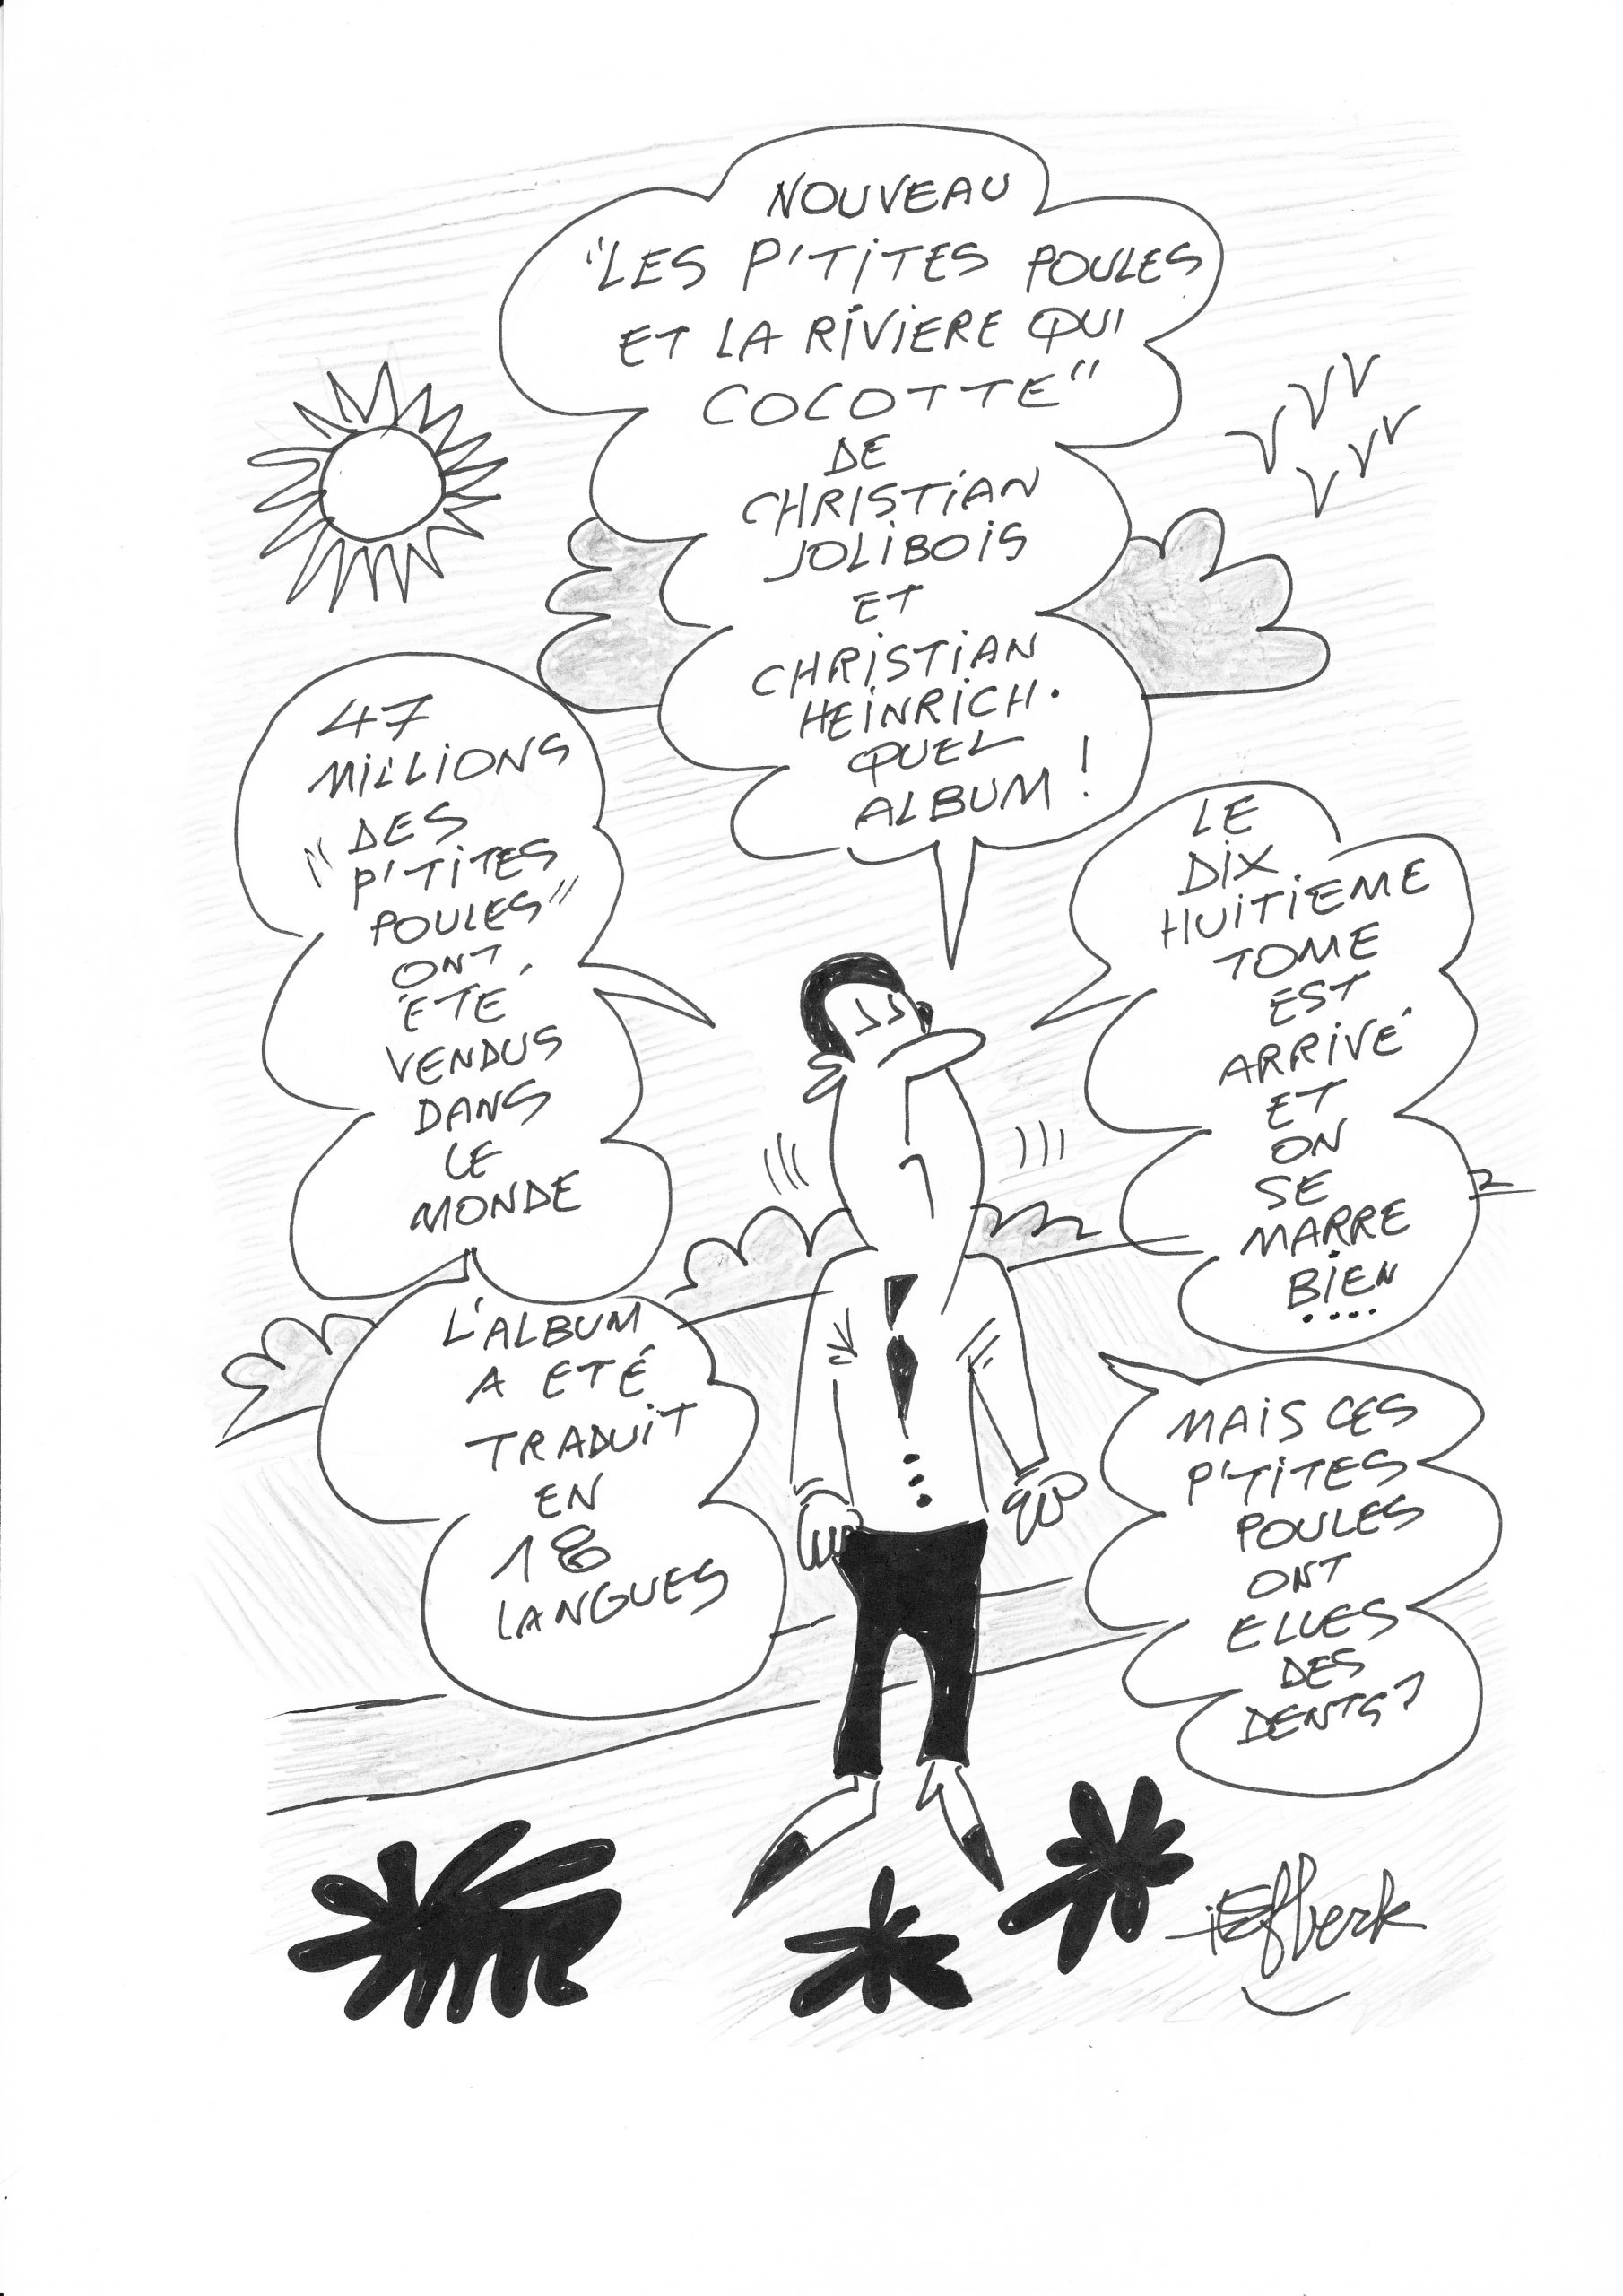 NOUVEAU
"LES P'TITES POULES
ET LA RIVIERE QUI
COCOTTE"
DE
CHRISTIAN
JOLIBOIS
ET
CHRISTIAN
HEINRICH.
QUEL
ALBUM!
47
MILLIONS
"DES
P'TITES
POULES"
ONT
ÉTÉ
VENDUS
DANS
LE
MONDE
L'ALBUM
A ETÉ
TRADUIT
EN
18
LANGUES
LE
DIX
HUITIEME
TOME
EST
ARRIVÉ
ET
ON
SE
MARRE
BIEN
....
MAIS CES
P'TITES
POULES
ONT
ELLES
DES
DENTS?